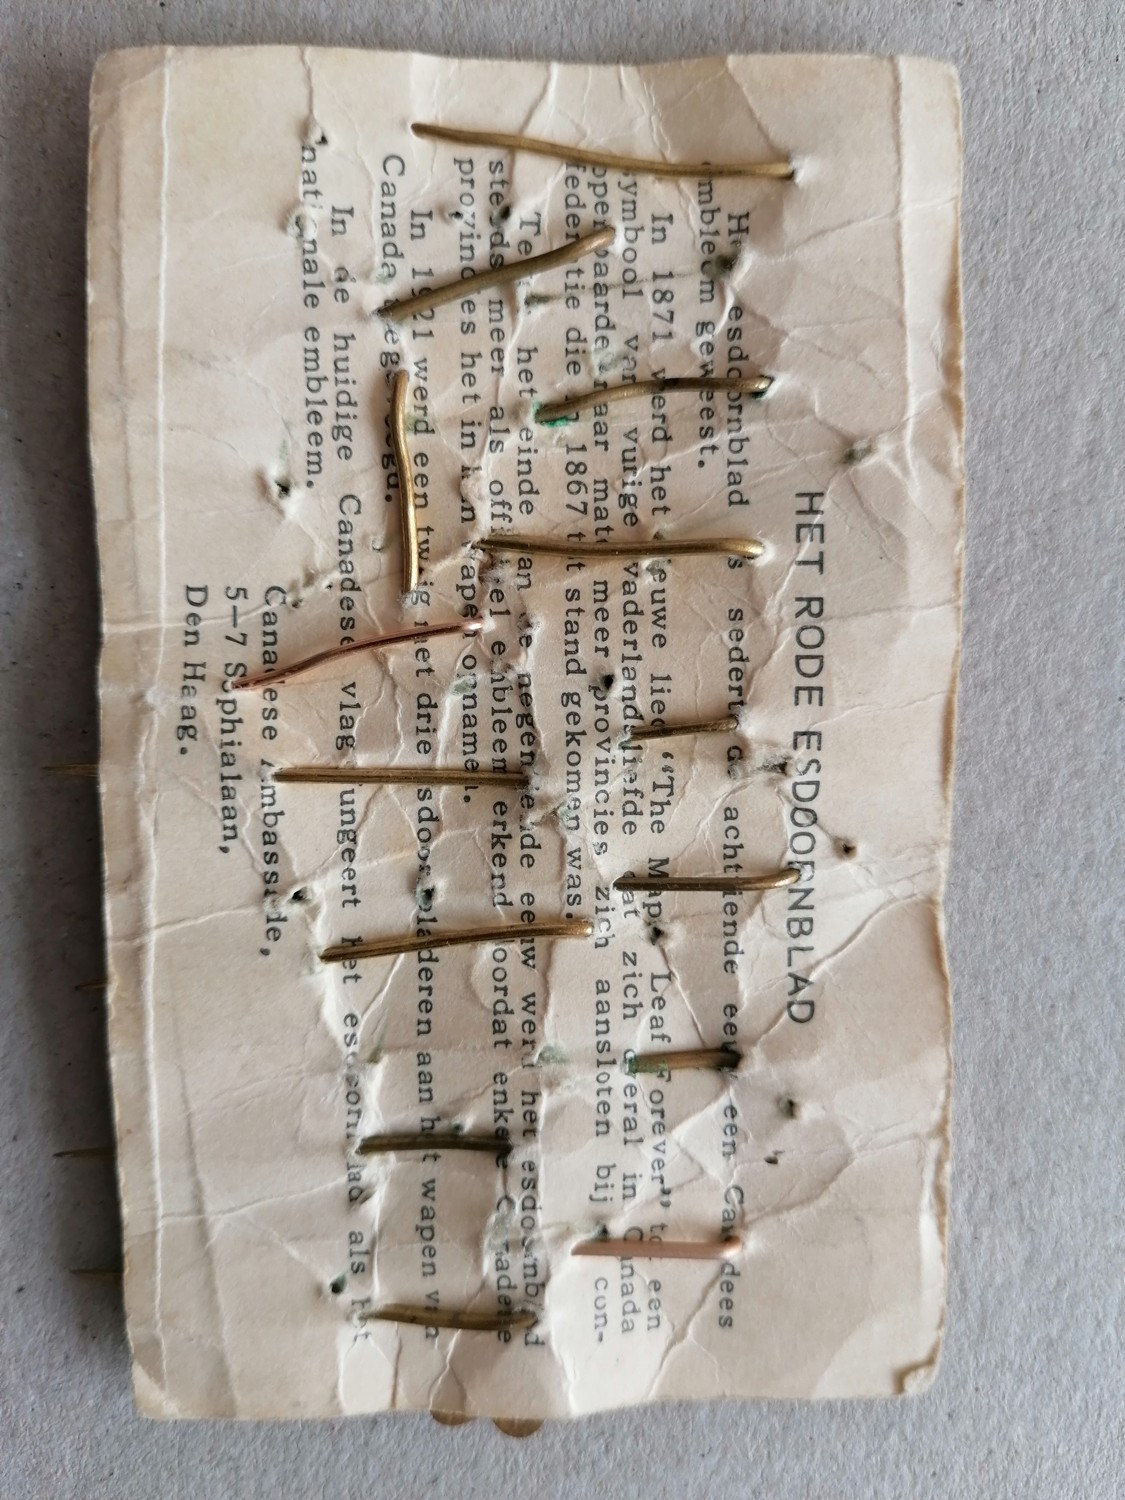 HET RODE ESDOORNBLAD
Het esdoornblad is sedert de achttiende eeuw een Canadees
embleem geweest.
In 1871 werd het nieuwe lied “The Maple Leaf Forever” tot een
symbool van vurige vaderlandsliefde dat zich overal in Canada
openbaarde naar mate meer provincies zich aansloten bij con-
federatie die in 1867 tot stand gekomen was.
Tegen het einde van de negentiende eeuw werd het esdoornblad
steeds meer als officieel embleem erkend doordat enkele Canadese
provincies het in hun wapen opnamen.
In 1921 werd een twijg met drie esdoornbladeren aan het wapen van
Canada toegevoegd.
In de huidige Canadese vlag fungeert het esdoornblad als het
nationale embleem.
Canadese Ambassade,
5–7 Sophialaan,
Den Haag.